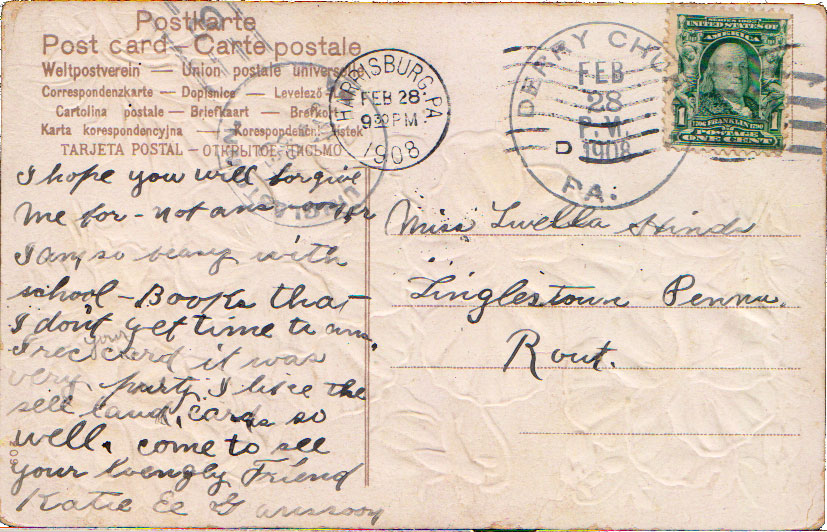 Postkarte
Post card – Carte postale
Weltpostverein — Union postale universelle
Correspondenzkarte — Dopisnice — Levelező
Cartolina postale — Briefkaart — Brefkort
Karta korespondencyjna — Korespondenční listek
TARJETA POSTAL — ОТКРЫТОЕ ПИСЬМО
HARRISBURG, PA.
FEB 28
9 30 PM
1908
DERRY CHU
FEB
28
P.M.
D 1908
PA.
SERIES 1902
UNITED STATES OF AMERICA
1706 FRANKLIN 1790
POSTAGE
1 ONE CENT 1
I hope you will forgive
me for - not ans your
I am so beasy with
school - Books that
I don't get time to ans.
I rec your card it was
very purty I like the
sell land, cards so
well. come to see
your lovengly Friend
Katie
Miss Luella Hinds
Linglestown Penna.
Rout.
209